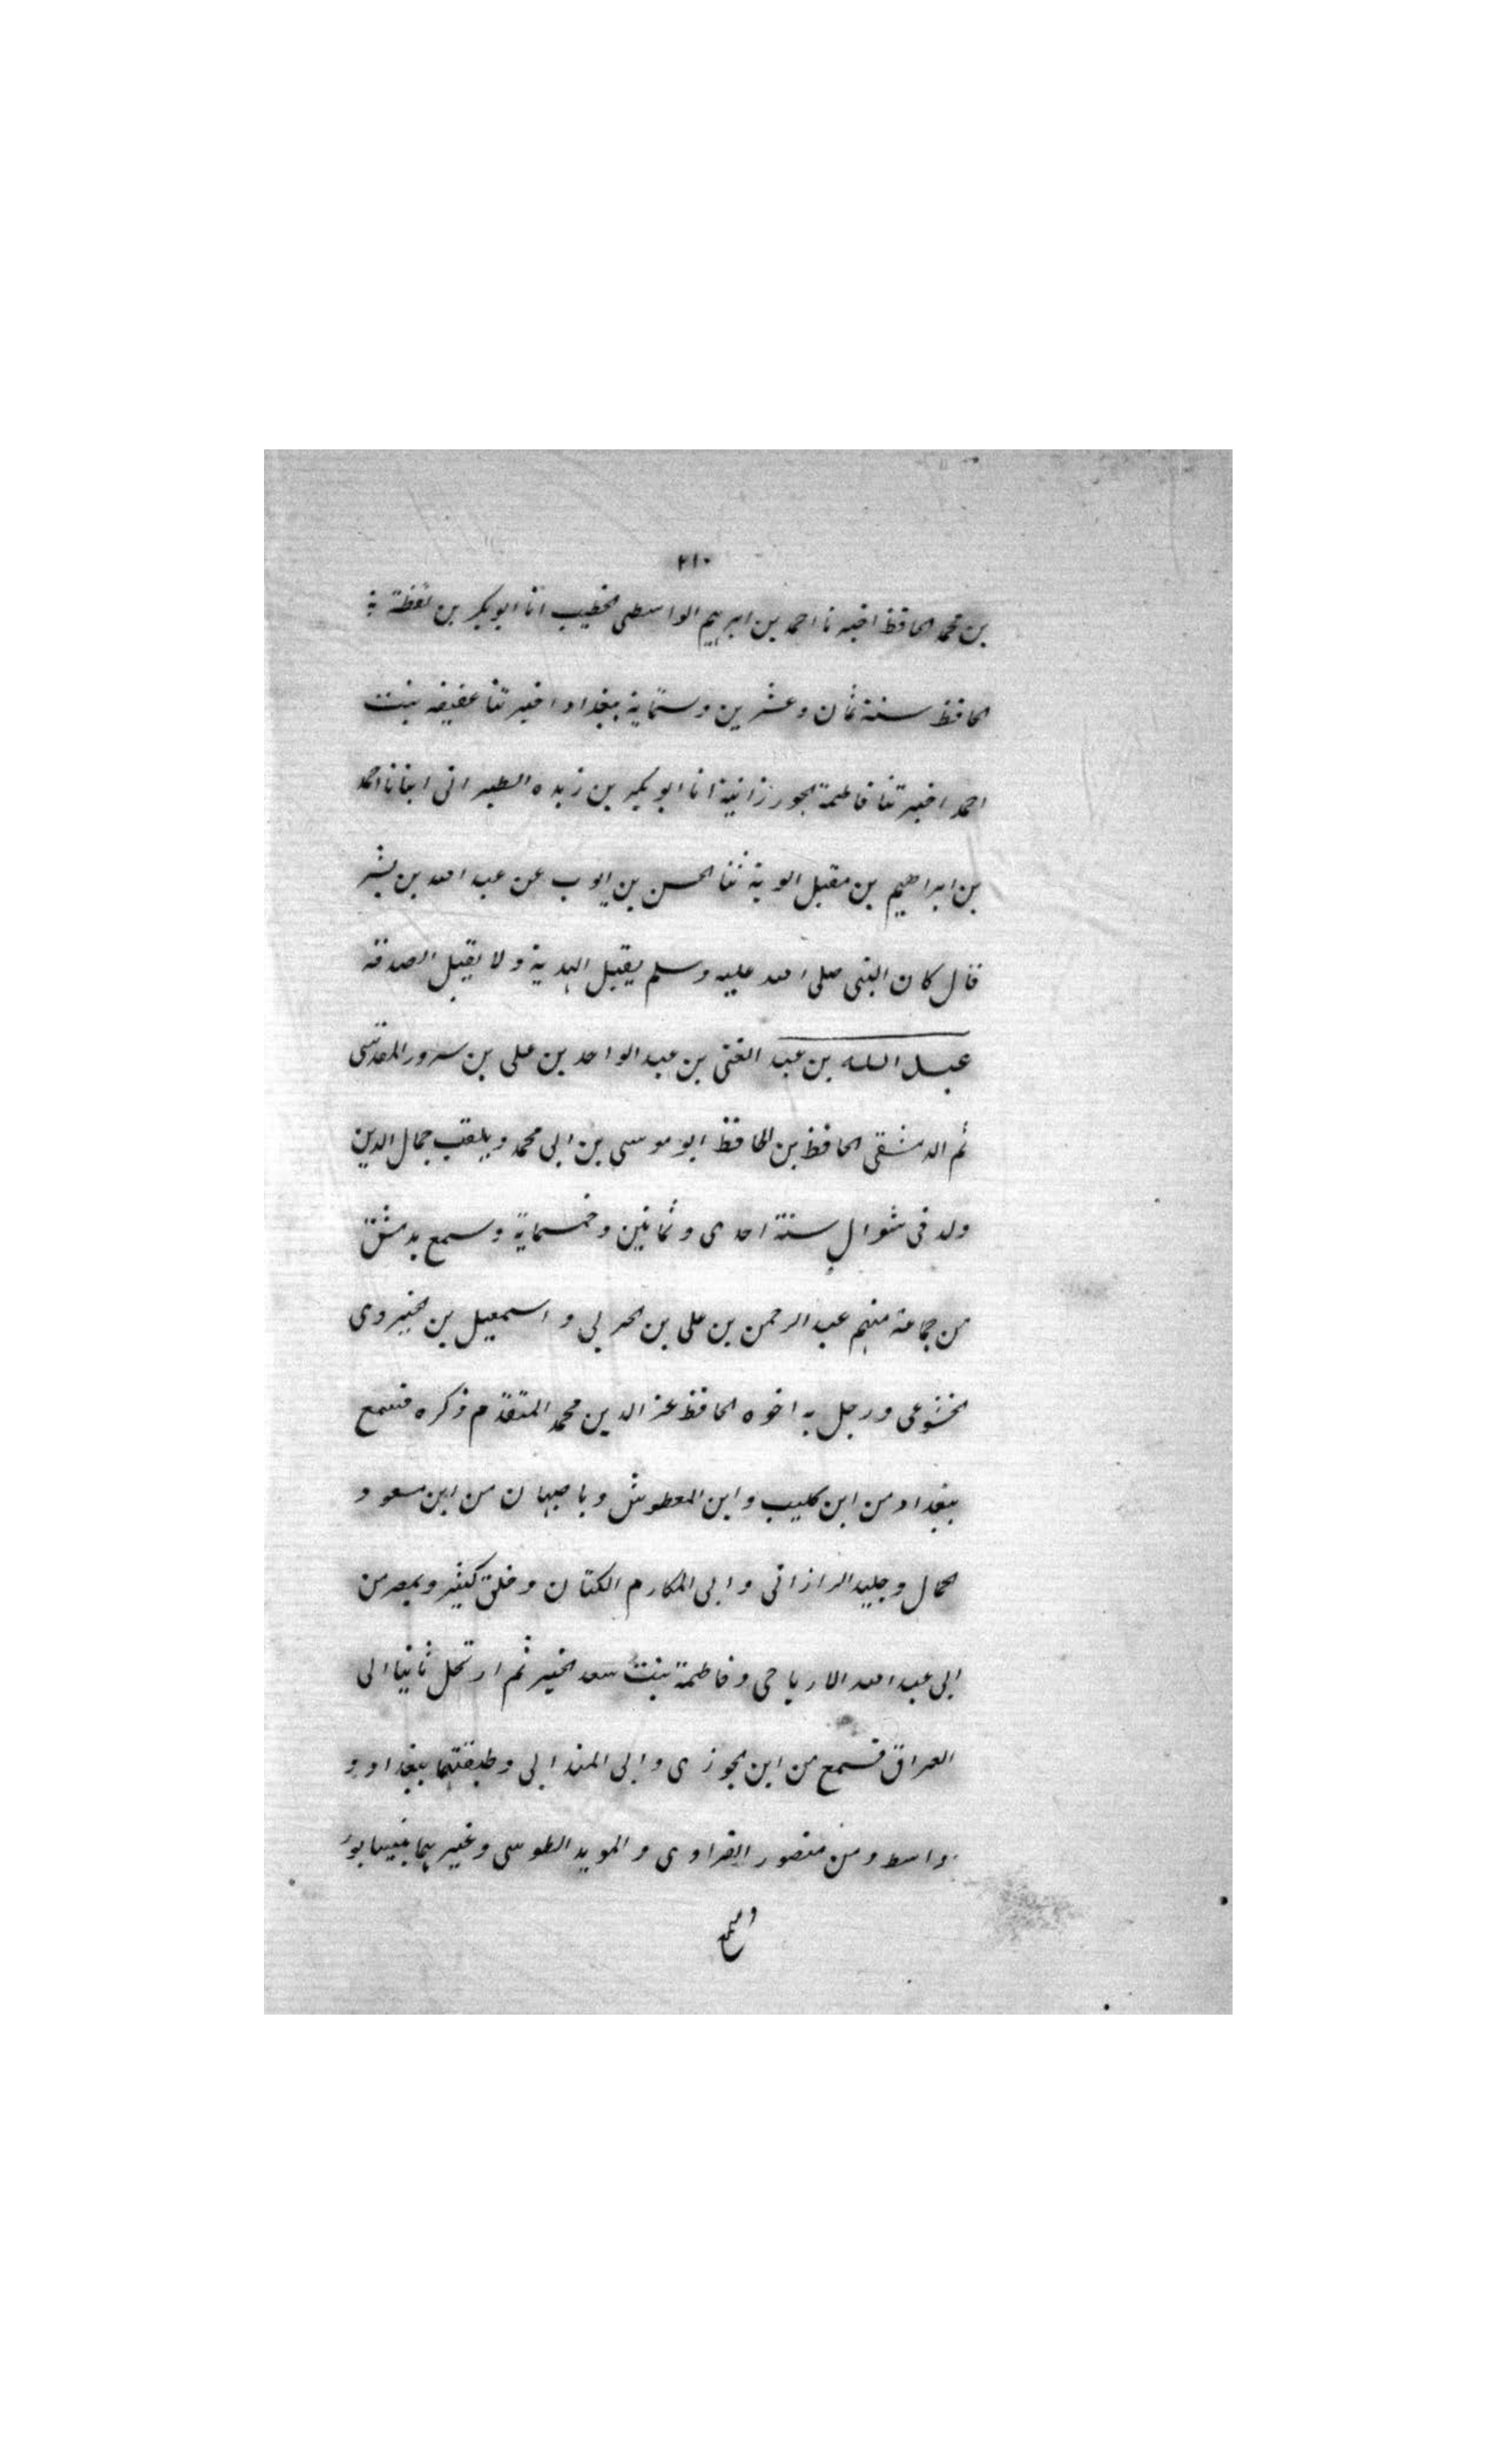 ٢١٠
بن محمد الحافظ اخبرنا احمد بن ابرہیم الواسطی الخطیب انا ابو بکر بن نقطة
الحافظ سنة ثمان وعشرین وستمایة ببغداد اخبرتنا عفیفه بنت
احمد اخبرتنا فاطمة الجوزدانیة انا ابو بکر بن زبده الطبرانی انبانا احمد
بن ابراهیم بن مقبل ثنا الحسن بن ایوب عن عبد الله بن بشر
قال کان النبی صلی الله علیه وسلم یقبل الهدیة ولا یقبل الصدقة
عبد الله بن عبد الغنی بن عبد الواحد بن علی بن سرور المقدسی
ثم الدمشقی الحافظ بن الحافظ ابو موسی بن ابی محمد ویلقب جمال الدین
ولد فی شوال سنة احدی وثمانین وخمسمایة وسمع بدمشق
من جماعة منهم عبد الرحمن بن علی بن الحرلی و اسمعیل بن الخیروی
الخشوعی ورحل به اخوه الحافظ عز الدین محمد المتقدم ذکره فسمع
ببغداد من ابن کلیب وابن المعطوش وباصبهان من ابن مسعود
الحمال وجلید الرازانی وابی المکارم الکتان وخلق کثیر وبمصر من
ابی عبد الله الاریاحی وفاطمة بنت سعد الخیر ثم ارتحل ثانیا الی
العراق فسمع من ابن الجوزی وابی المندابی وطبقتهما ببغداد و
واسط ومن منصور الفراوی و الموید الطوسی وغیرہما بنیسابور
وسمع